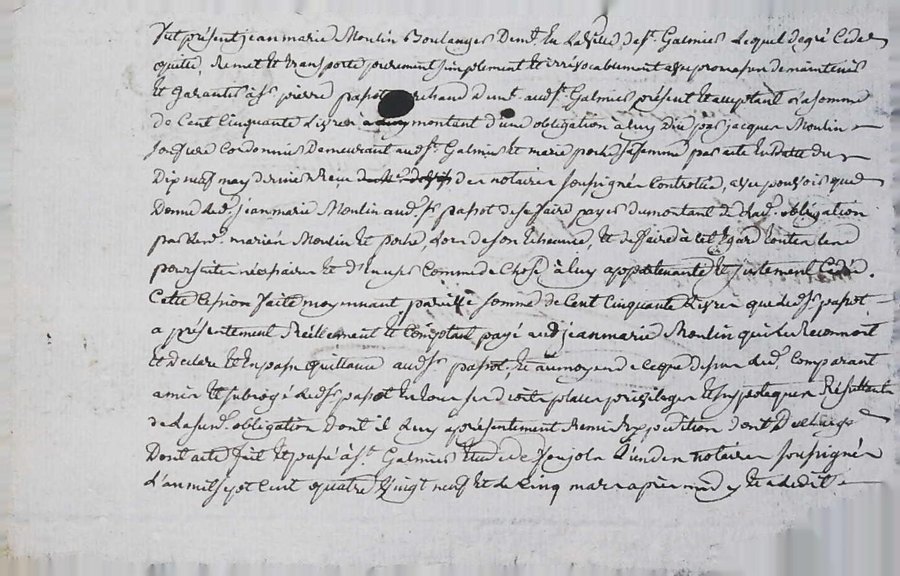 Fut présent jean marie Moulin Boulanger Demt. En La Ville de St. Galmier Lequel de gré Cède
quitte, Remet et transporte purement simplement et irrévocablement avec promesse de maintenir
et garantir à Sr. pierre papot marchand Demt. aud. St. Galmier présent et acceptant La somme
de Cent Cinquante Livres montant d'une obligation à Luy Due par jacques Moulin
Cordonnier Demeurant aud. St. Galmier et marie sa femme par acte En Datte du
Dix neuf may dernier Reçu des notaires soussignés Controllé, avec pouvoir que
Donne Led. jean marie Moulin aud. Sr. papot de se faire payer du montant de Lad. obligation
par Moulin et Lors de son Echeance, et de faire à cet Egard toutes Les
poursuites nécessaires et d'En user Comme de Chose à Luy appartenante et justement Cédée.
Cette Cession faite moyennant pareille somme de Cent Cinquante Livres que Led. Sr. papot
a présentement Réellement et Comptant payé aud. jean marie Moulin qui Le Reconnoit
et Declare et En passe quittance aud. Sr. papot, et au moyen de ce que dessus Led. Comparant
a mis et subrogé Led. Sr. papot En tous ses droits places privileges et hypoteques Résultants
de La susd. obligation Dont il Luy a présentement Remis Expedition Dont Decharge
Dont acte fait et passé à St. Galmier Etude de L'un des notaires soussignés
L'an mil sept Cent quatre Vingt neuf et Le Cinq mars après midy Et a Led. St.